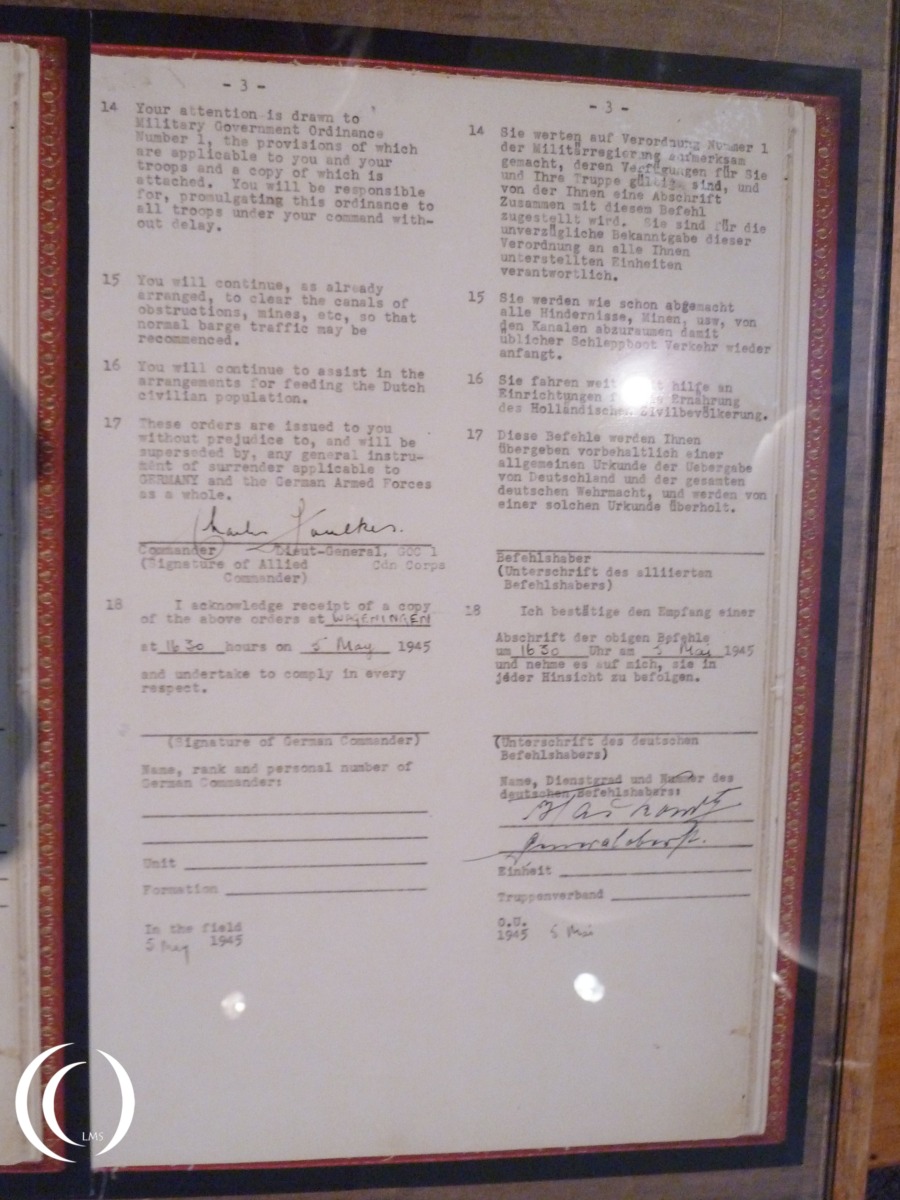 - 3 -
14 Your attention is drawn to
Military Government Ordinance
Number 1, the provisions of which
are applicable to you and your
troops and a copy of which is
attached. You will be responsible
for, promulgating this ordinance to
all troops under your command with-
out delay.
15 You will continue, as already
arranged, to clear the canals of
obstructions, mines, etc, so that
normal barge traffic may be
recommenced.
16 You will continue to assist in the
arrangements for feeding the Dutch
civilian population.
17 These orders are issued to you
without prejudice to, and will be
superseded by, any general instru-
ment of surrender applicable to
GERMANY and the German Armed Forces
as a whole.
Charles Foulkes.
Commander Lieut-General, GOC 1
(Signature of Allied Cdn Corps
Commander)
18 I acknowledge receipt of a copy
of the above orders at WAGENINGEN
at 1630 hours on 5 May 1945
and undertake to comply in every
respect.
(Signature of German Commander)
Name, rank and personal number of
German Commander:
Unit
Formation
In the field
5 May 1945
- 3 -
14 Sie werten auf Verordnung Nummer 1
der Militärregierung aufmerksam
gemacht, deren Verfügungen für Sie
und Ihre Truppe gültig sind, und
von der Ihnen eine Abschrift
Zusammen mit diesem Befehl
zugestellt wird. Sie sind für die
unverzügliche Bekanntgabe dieser
Verordnung an alle Ihnen
unterstellten Einheiten
verantwortlich.
15 Sie werden wie schon abgemacht
alle Hindernisse, Minen, usw, von
den Kanalen abzuraumen damit
üblicher Schleppboot Verkehr wieder
anfangt.
16 Sie fahren hilfe an
Einrichtungen Ernährung
des Holländischen Zivilbevölkerung.
17 Diese Befehle werden Ihnen
übergeben vorbehaltlich einer
allgemeinen Urkunde der Uebergabe
von Deutschland und der gesamten
deutschen Wehrmacht, und werden von
einer solchen Urkunde überholt.
Befehlshaber
(Unterschrift des alliierten
Befehlshabers)
18 Ich bestätige den Empfang einer
Abschrift der obigen Befehle
um 1630 Uhr am 5 Mai 1945
und nehme es auf mich, sie in
jeder Hinsicht zu befolgen.
(Unterschrift des deutschen
Befehlshabers)
Name, Dienstgrad und Nummer des
deutschen Befehlshabers:
Blaskowitz
Generaloberst.
Einheit
Truppenverband
O.U.
1945 5 Mai
LMS